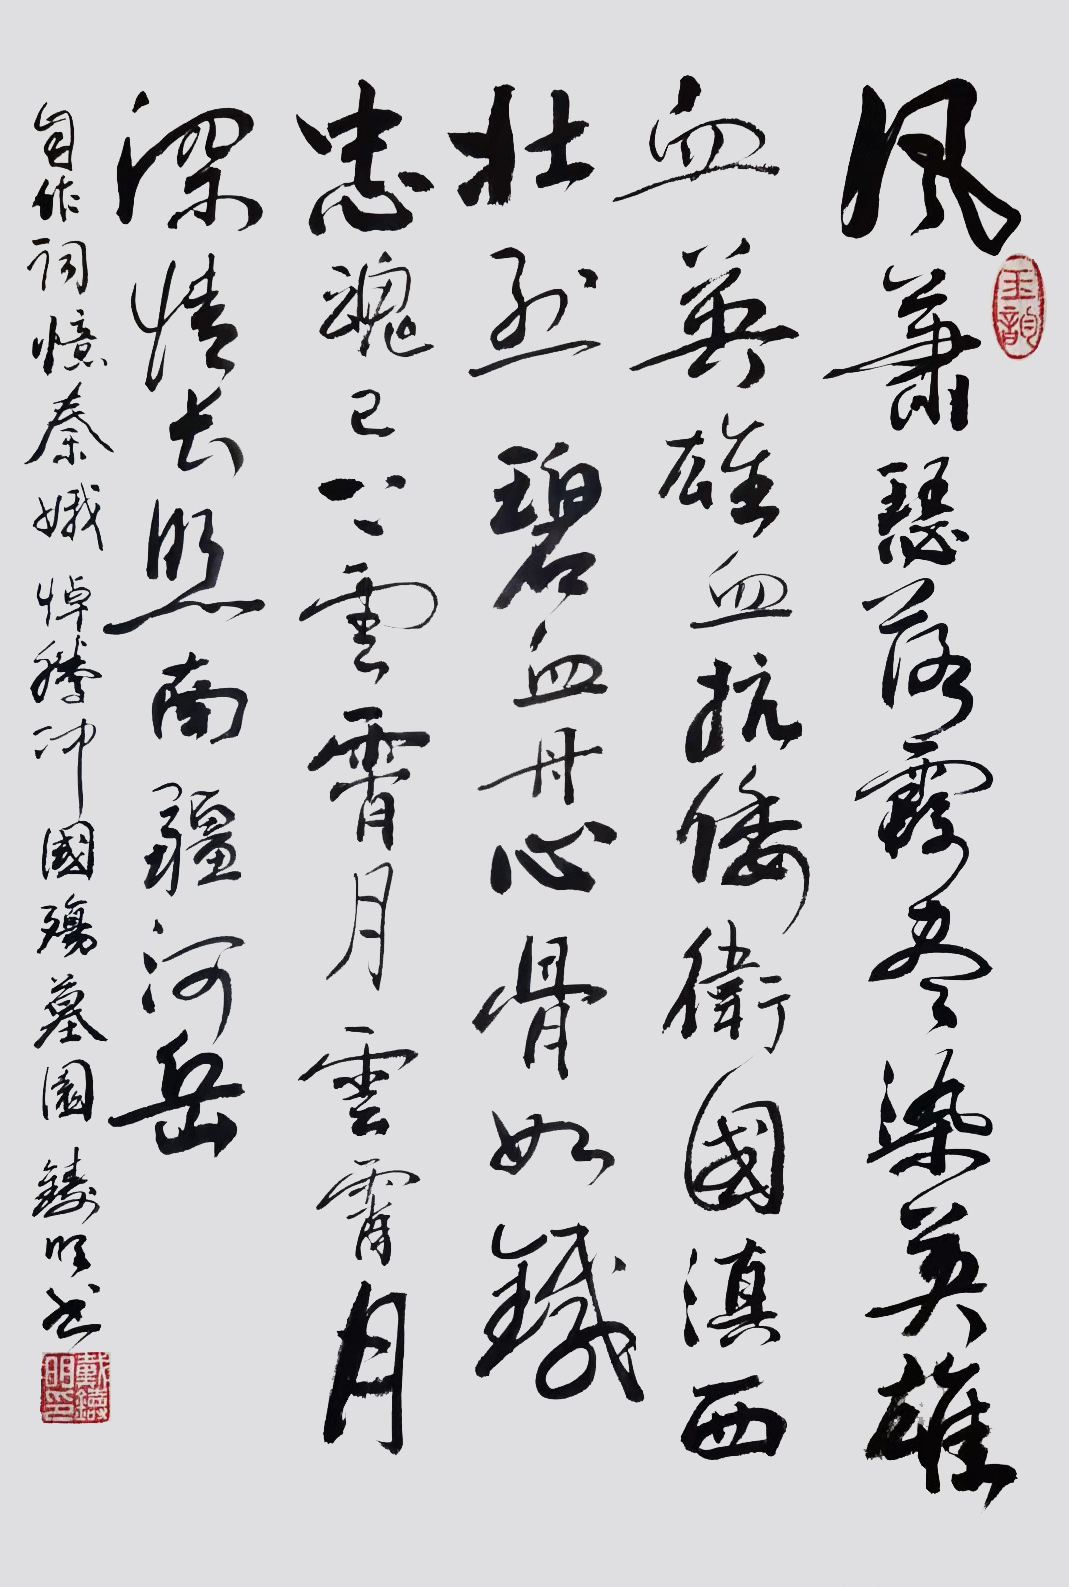 风蕭瑟落霞尽染英雄
血英雄血抗倭衛國滇西
壯烈碧血丹心骨如鐵
忠魂已上雲霄月雲霄月
深情长照南疆河岳
自作詞憶秦娥悼騰冲國殤墓園鑄明书
戴鑄明印